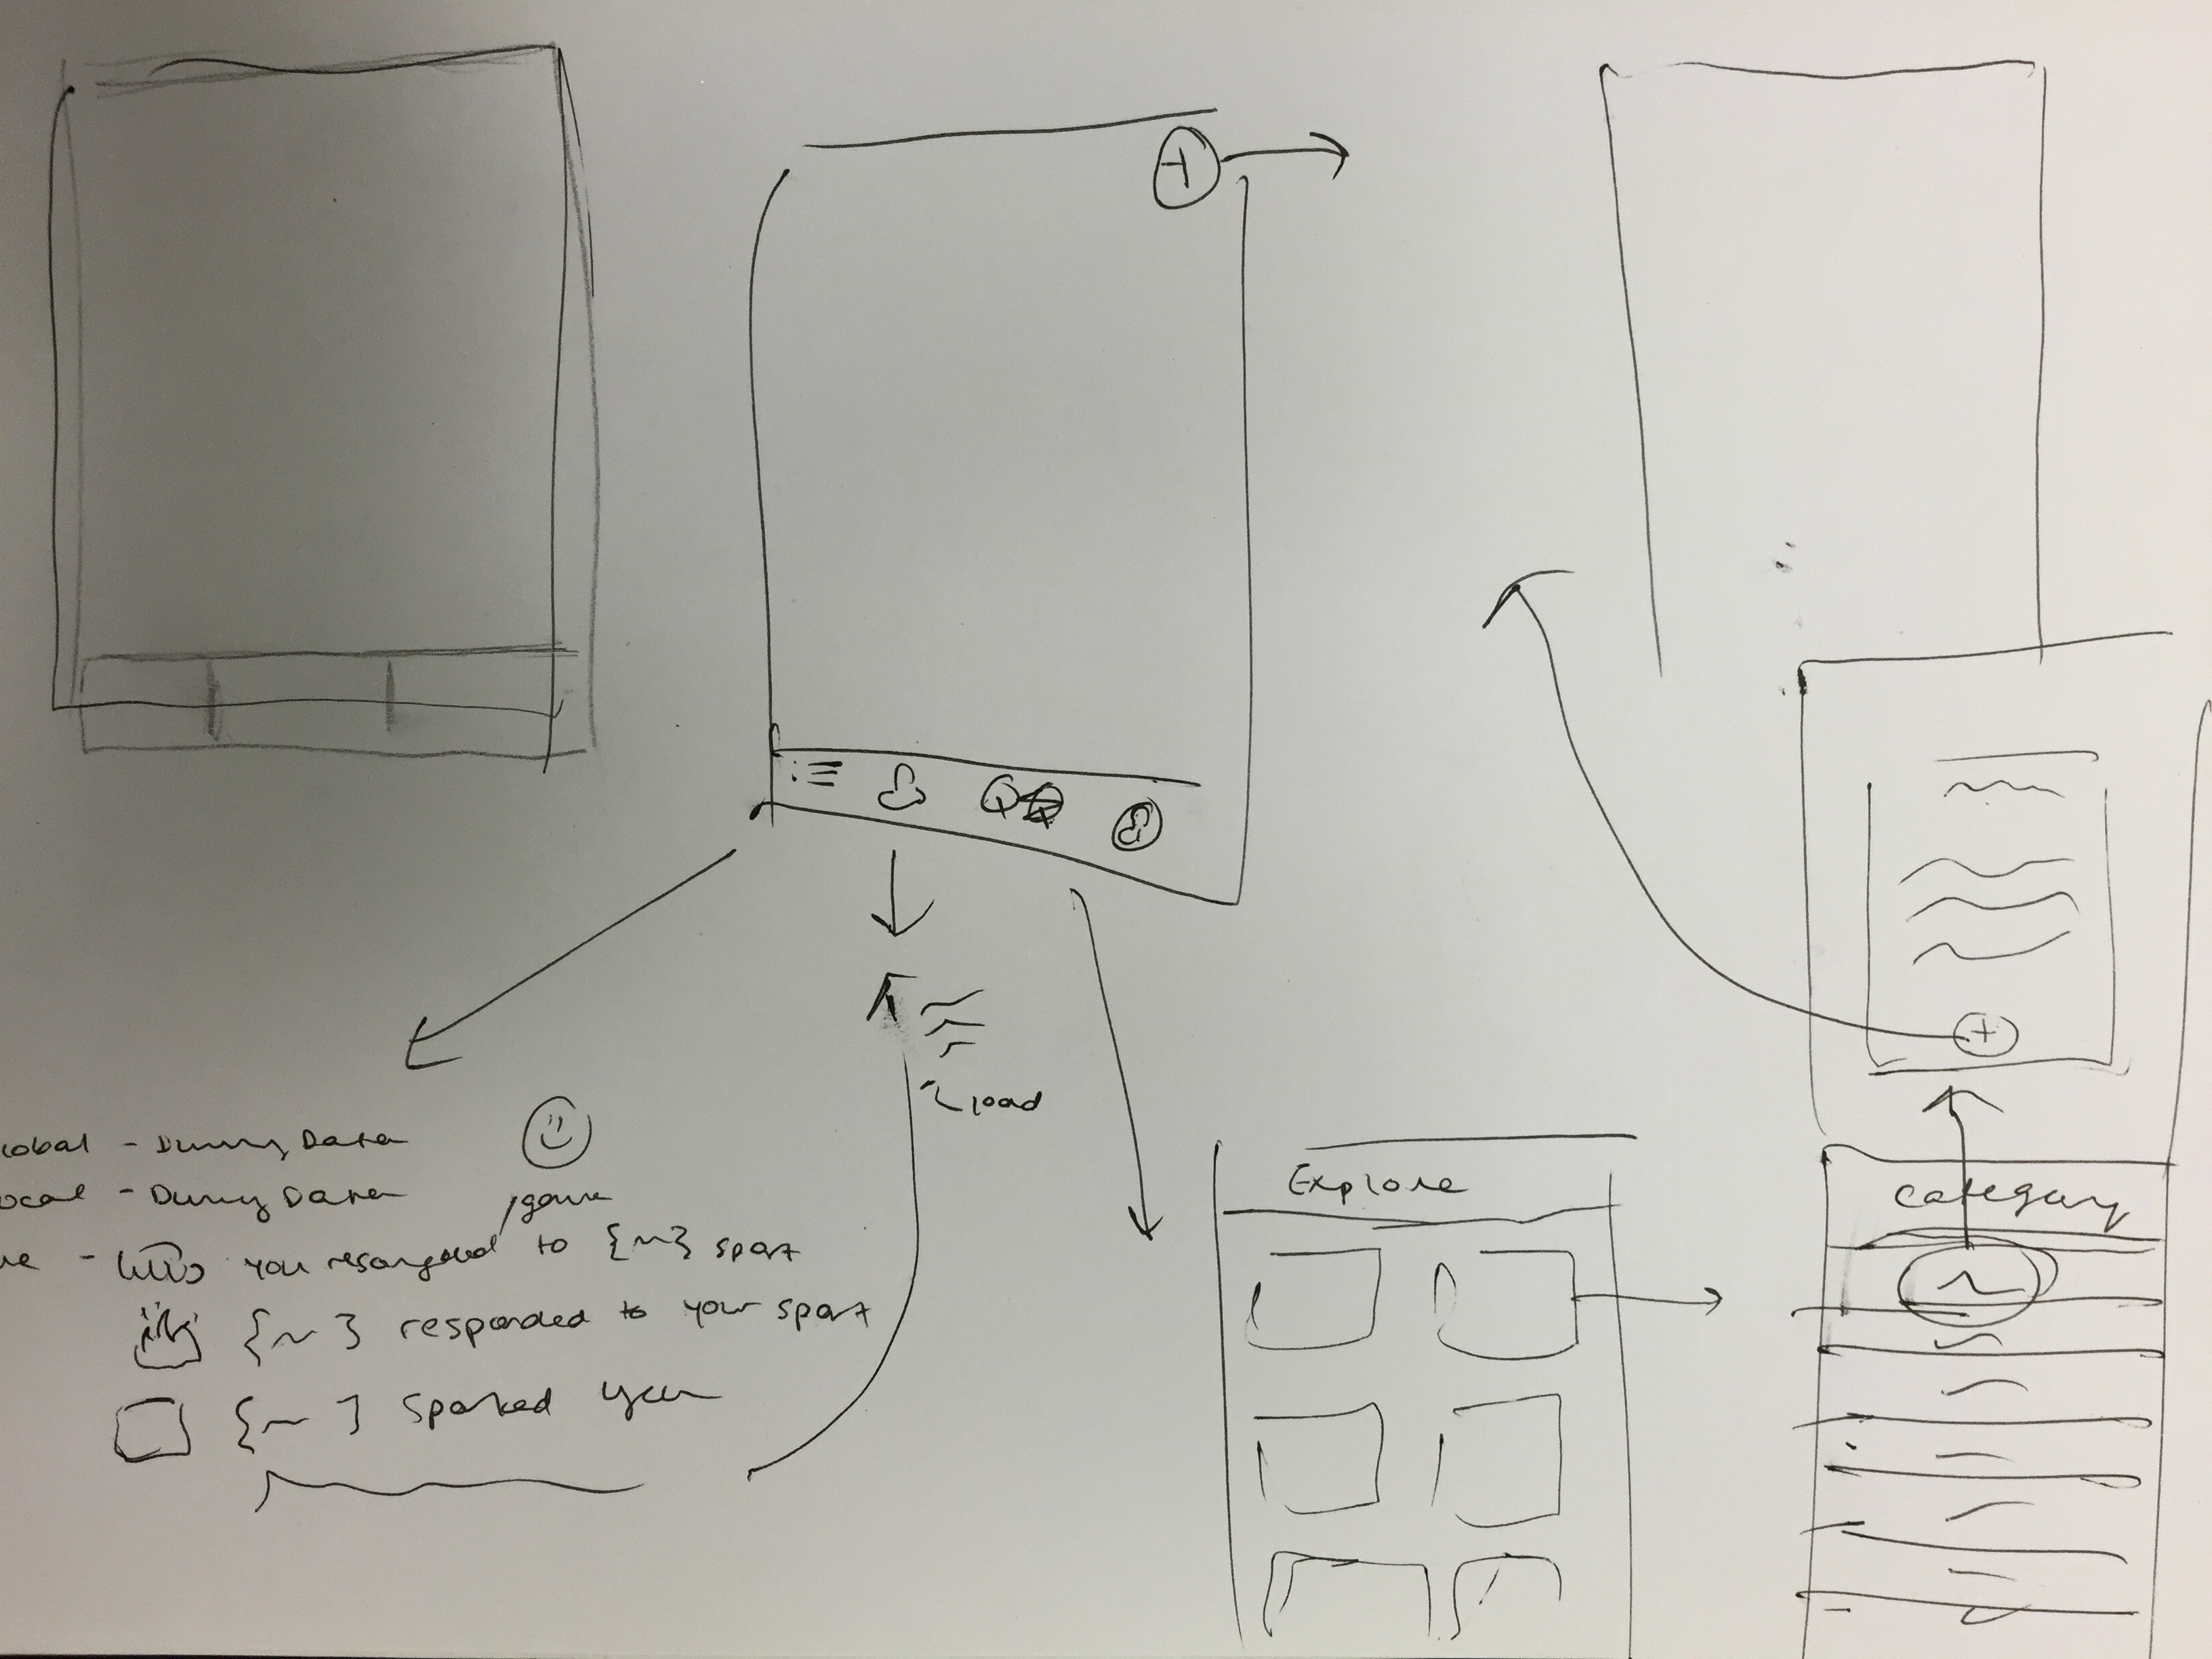 load
cobal - Dummy Data
ocal - Dummy Data
game
ue - you responded to {~} spark
{~} responded to your spark
{~} sparked you
Explore
Category